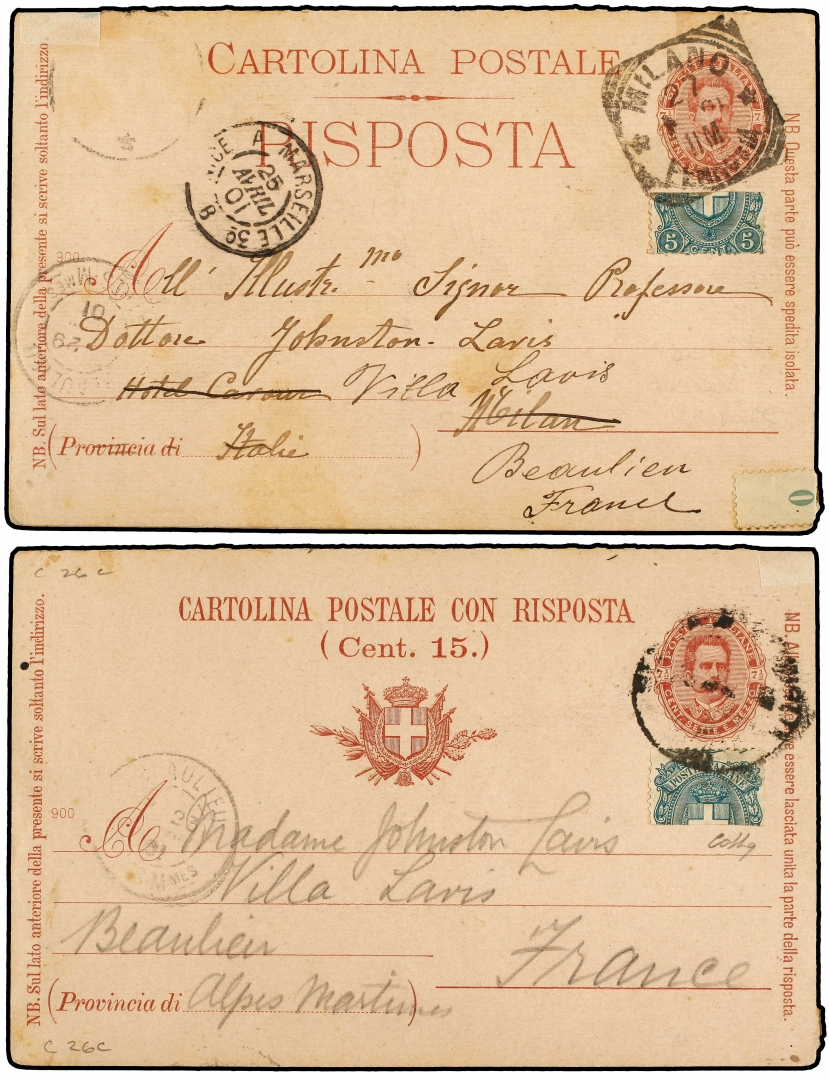 CARTOLINA POSTALE
RISPOSTA
NB. Sul lato anteriore della presente si scrive soltanto l'indirizzo
NB. Questa parte può essere spedita isolata.
MILANO
FERROVIA
A MARSEILLE 3º
25
AVRIL
01
B
5 CENT. 5
900
All' Illustr. mo Signor Professore
Dottore Johnston-Lavis
Hotel Cavour Villa Lavis
Milan
(Provincia di Italie )
Beaulieu
France
0
C 26 C
CARTOLINA POSTALE CON RISPOSTA
(Cent. 15.)
NB. Sul lato anteriore della presente si scrive soltanto l'indirizzo.
essere lasciata unita la parte della risposta.
POSTE ITALIANE
CENT. SETTE E MEZZO
POSTE ITALIANE
Colla
BEAULIEU
900
A Madame Johnston Lavis
Villa Lavis
Beaulieu
France
(Provincia di Alpes Maritimes )
C 26C